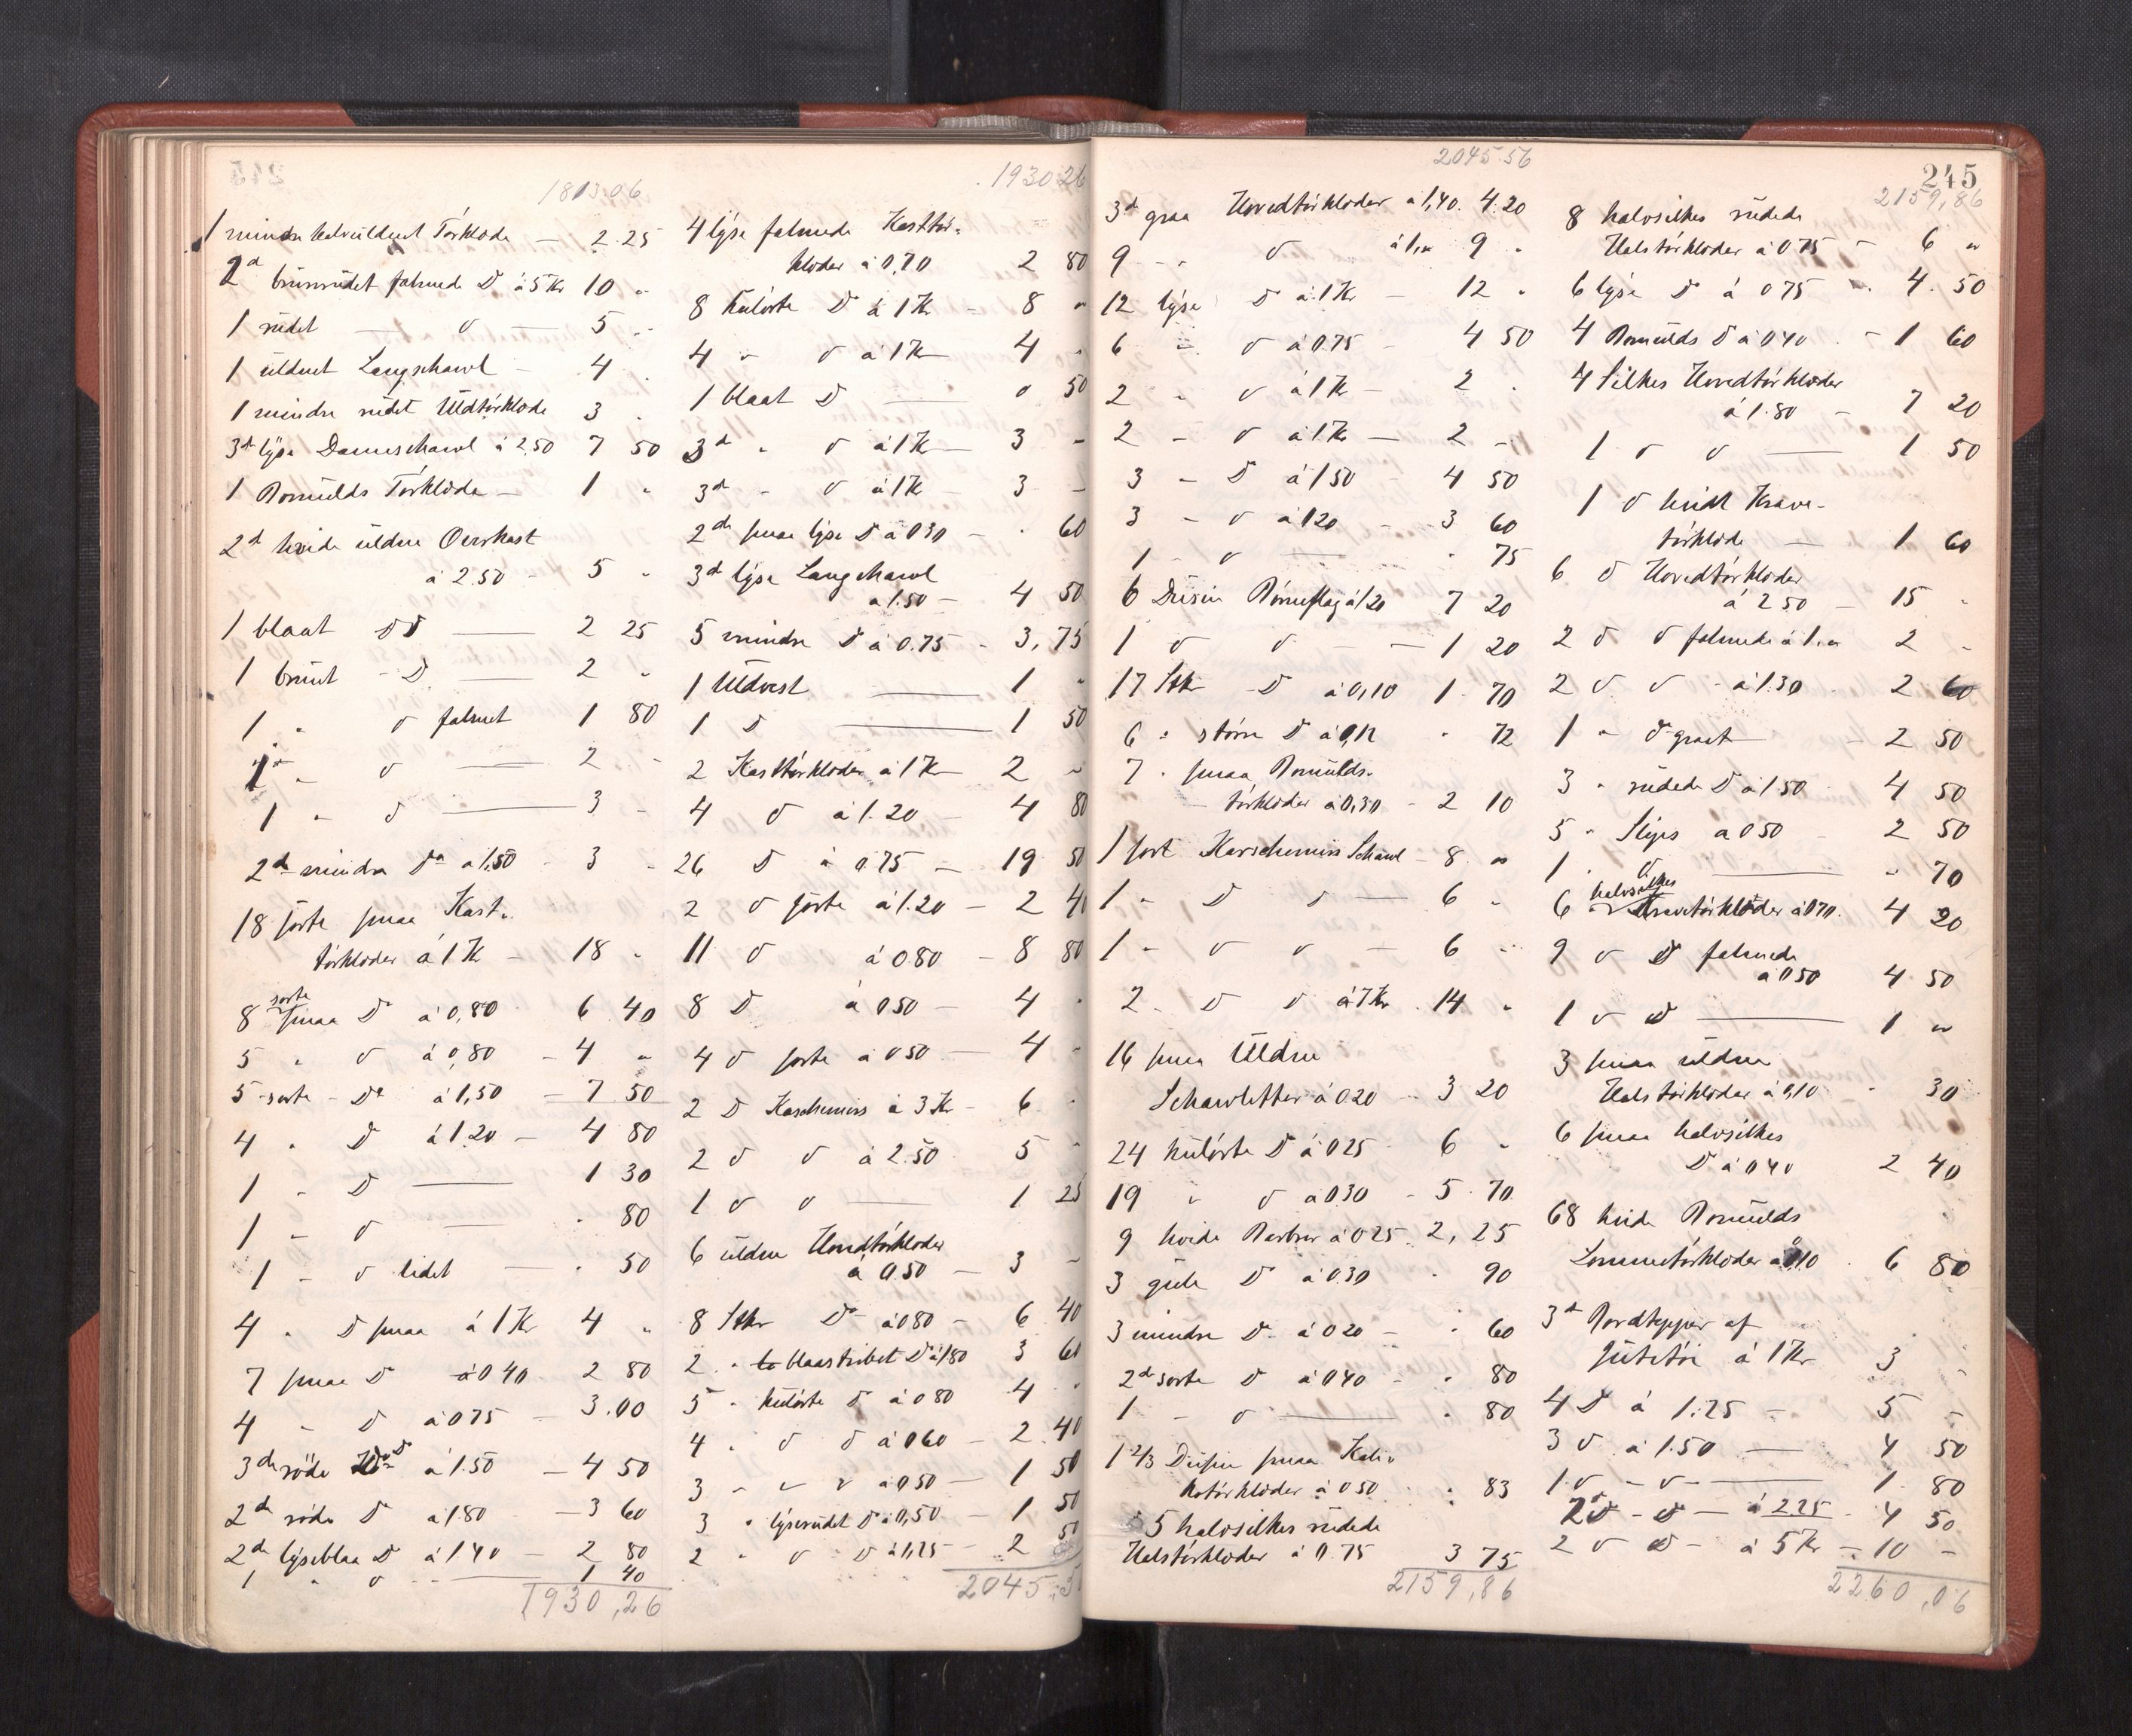 1813.06
1 mindre halvuldent Törklæde — 2.25
2 d brunrudet falmede Do à 5 Kr 10 "
1 rudet — Do — 5 "
1 uldent Langschawl — 4 .
1 mindre rudet Uldtörklæde 3 .
3 d lyse Dameschawl à 2.50 7 50
1 Bomulds Törklæde — 1 "
2 d hvide uldne Overkast
à 2.50 — 5 "
1 blaat Do Do — 2 25
1 brunt - Do — 2 "
1 " Do falmet 1 80
1 " Do — 2 -
1 " Do — 3 -
2 d mindre Do à 1,50 - 3 -
18 sorte smaa Kast-
törklæder à 1 Kr — 18 "
8 sorte smaa Do à 0,80 6 40
5 " Do à 0,80 - 4 "
5 sorte - Do à 1,50 — 7 50
4 " Do à 1.20 — 4 80
1 - Do — 1 30
1 - Do — " 80
1 - Do lidet — " 50
4 " Do smaa à 1 Kr 4 "
7 smaa Do à 0 40 2 80
4 - Do à 0 75 — 3.00
3 d röde Do à 1.50 — 4 50
2 d röde Do à 1 80 — 3 60
2 d lyseblaa Do à 1 40 — 2 80
1 " Do — 1 40
1930,26
1930 26
4 lyse falmede Kasttör-
klæder à 0,70 2 80
8 kulörte Do à 1 Kr - 8 "
4 - Do à 1 Kr 4 "
1 blaat Do — 0 50
3 d " Do à 1 Kr — 3 -
3 d - Do à 1 Kr 3 -
2 d smaa lyse Do à 0 30 — " 60
3 d lyse Langschawl
à 1.50 — 4 50
5 mindre Do à 0.75 - 3,75
1 Uldvest — 1 "
1 Do — 1 50
2 Kasttörklæder à 1 Kr 2 -
4 Do à 1.20 4 80
26 Do à 0 75 — 19 50
2 Do sorte à 1.20 — 2 40
11 Do à 0 80 - 8 80
8 Do à 0 50 — 4 "
4 Do sorte à 0 50 — 4 -
2 Do Kaschemirs à 3 Kr - 6 "
2 Do Do à 2.50 5 "
1 Do Do — 1 25
6 uldne Hovedtörklæder
à 0.50 — 3 -
8 Stkr Do à 0 80 — 6 40
2 " blaastribet Do à 1 80 3 60
5 " kulörte Do à 0 80 4 "
4 " Do Do à 0 60 — 2.40
3 - - - à 0 50 — 1 50
3 " lyserudet Do à 0,50 — 1 50
2 " Do Do à 1,25 — 2 50
2045.5
2045.56
3 d graa Hovedtörklæder à 1,40. 4.20
9 - " Do à 1,00 9 "
12 lyse Do à 1 Kr — 12 "
6 " Do à 0.75 - 4 50
2 " Do à 1 Kr — 2 .
2 - Do à 1 Kr — 2 -
3 - Do à 1 50 4 50
3 - Do à 1 20 - 3 60
1 - Do — " 75
6 Dusin à 1 20 7 20
1 Do Do — 1 20
17 Stkr Do à 0,10 1 70
6 " större Do à 0,12 " 72
7 " smaa Bomulds-
törklæder à 0,30 - 2 10
1 sort Karschemirs Schawl - 8 "
1 - Do Do — 6 "
1 - Do Do — 6 -
2 - Do Do à 7 Kr. 14 "
16 smaa Uldne
Schawletter à 0 20 - 3 20
24 kulörte Do à 0 25 6 "
19 " Do à 0 30 - 5 70
9 hvide à 0 25 . 2,25
3 gule Do à 0.30 " 90
3 mindre Do à 0 20 — " 60
2 d sorte Do à 0 40 - " 80
1 - Do — " 80
1 2/3 Dusin smaa Kali-
kotörklæder à 0 50 " 83
5 halvsilkes rudede
Halstörklæder à 0.75 3 75
2159,86
245
2159,86
8 halvsilkes rudede
Halstörklæder à 0 75 - 6 "
6 lyse Do à 0 75 4.50
4 Bomulds Do à 0 40 - 1 60
4 Silkes Hovedtörklæder
à 1.80 - 7 20
1 Do Do — 1 50
1 Do hvidt Krave-
törklæde — 1 60
6 Do Hovedtörklæder
à 2 50 — 15 "
2 Do Do falmede à 1.00 2 -
2 Do Do - à 1.30 2 60
1 " Do graat - 2 50
3 " rudede Do à 1 50 4 50
5 " Slips à 0 50 2 50
1 " Do — " 70
6 halvsilkes Kravetörklæder à 0 70. 4 20
9 Do Do falmede
à 0 50 4 50
1 Do Do — 1 "
3 smaa uldne
Halstörklæder à 0,10 " 30
6 smaa halvsilkes
Do à 0 40 2 40
68 hvide Bomulds
Lommetörklæder à 0,10 . 6 80
3 d Bordtepper af
Jutetöi à 1 Kr 3 -
4 Do à 1.25 - 5 -
3 Do à 1.50 — 4 50
1 Do - Do — 1 80
2 Do - Do — à 2.25 - 4 50
2 Do Do - à 5 Kr — 10 -
2260,06